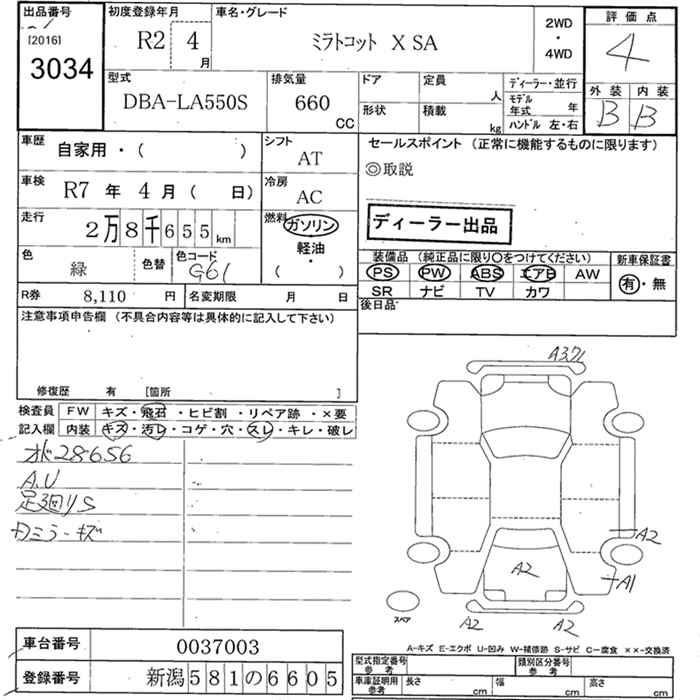 出品番号
[2016]
3034
初度登録年月
R2 4 月
車名・グレード
ミラトコット X SA
2WD
・
4WD
評価点
4
外装 内装
B B
型式
DBA-LA550S
排気量
660 CC
ドア
定員 人
形状
積載 kg
ディーラー・並行
モデル年式 年
ハンドル 左・右
車歴
自家用・( )
シフト
AT
車検
R7 年 4 月 ( 日)
冷房
AC
走行
2万8千655 km
燃料
ガソリン
軽油
( ・ )
色
緑
色替
色コード
G61
R券 8,110 円
名変期限 月 日
セールスポイント (正常に機能するものに限ります)
◎取説
ディーラー出品
装備品 (純正品に限り〇をつけてください)
PS PW ABS エアB AW
SR ナビ TV カワ
新車保証書
有・無
後日品
注意事項申告欄 (不具合内容等は具体的に記入して下さい)
修復歴 有 [箇所 ]
検査員記入欄
FW キズ・飛石・ヒビ割・リペア跡・×要
内装 キズ・汚レ・コゲ・穴・スレ・キレ・破レ
28656
A.U
足廻りS
ミラーキズ
A2
A1
A2
A2
A2
スペア
A-キズ E-エクボ U-凹み W-補修跡 S-サビ C-腐食 ××-交換済
車台番号 0037003
登録番号 新潟581の6605
型式指定番号 参考
類別区分番号 参考
車庫証明用 参考
長さ cm
幅 cm
高さ cm